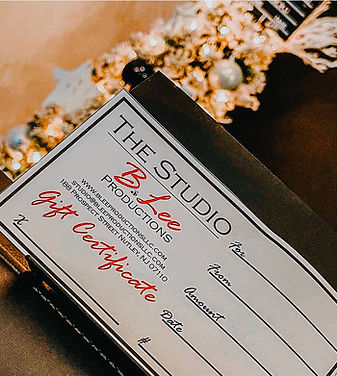 THE STUDIO
B. Lee
PRODUCTIONS
WWW.BLEEPRODUCTIONSLLC.COM
STUDIO@BLEEPRODUCTIONSLLC.COM
168 PROSPECT STREET NUTLEY, NJ 07110
Gift Certificate
For
From
Amount
Date
#